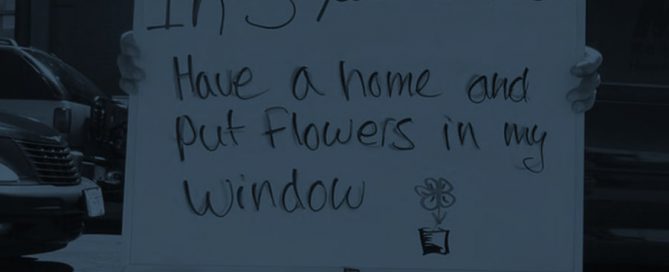 In 5
Have a home and
put Flowers in my
window